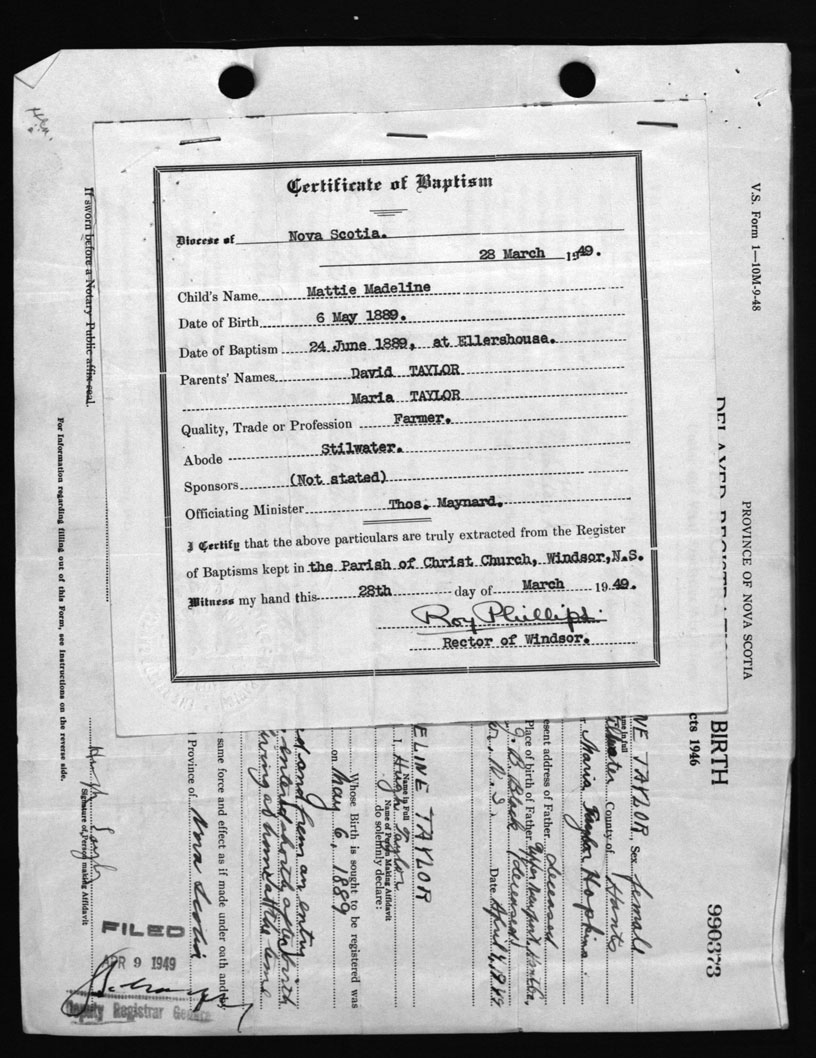 Certificate of Baptism
Diocese of Nova Scotia.
28 March 1949.
Child's Name Mattie Madeline
Date of Birth 6 May 1889.
Date of Baptism 24 June 1889, at Ellershouse.
Parents' Names David TAYLOR
Maria TAYLOR
Quality, Trade or Profession Farmer.
Abode Stilwater.
Sponsors (Not stated)
Officiating Minister Thos. Maynard.
I Certify that the above particulars are truly extracted from the Register
of Baptisms kept in the Parish of Christ Church, Windsor, N.S.
Witness my hand this 28th day of March 1949.
Roy Phillips.
Rector of Windsor.
V.S. Form 1—10M-9-48
PROVINCE OF NOVA SCOTIA
DELAYED REGISTRATION
BIRTH
990373
cts 1946
NE TAYLOR, Sex female
County of Hants
Maria Taylor Hopkins.
esent address of Father deceased
Place of birth of Father Upper Newport, Hants,
G. B. Black (deceased)
N.S. Date April 4, 1949
ELINE TAYLOR
Name in Full
I, Hugh Taylor
Name of Person Making Affidavit
do solemnly declare:
Whose Birth is sought to be registered was
on May 6, 1889
d and from an entry
entered shortly after birth
living at home at the time
same force and effect as if made under oath and by
Province of Nova Scotia
Hugh Taylor
Signature of Person making Affidavit
If sworn before a Notary Public affix seal.
For Information regarding filling out of this Form, see instructions on the reverse side.
FILED
APR 9 1949
Deputy Registrar General